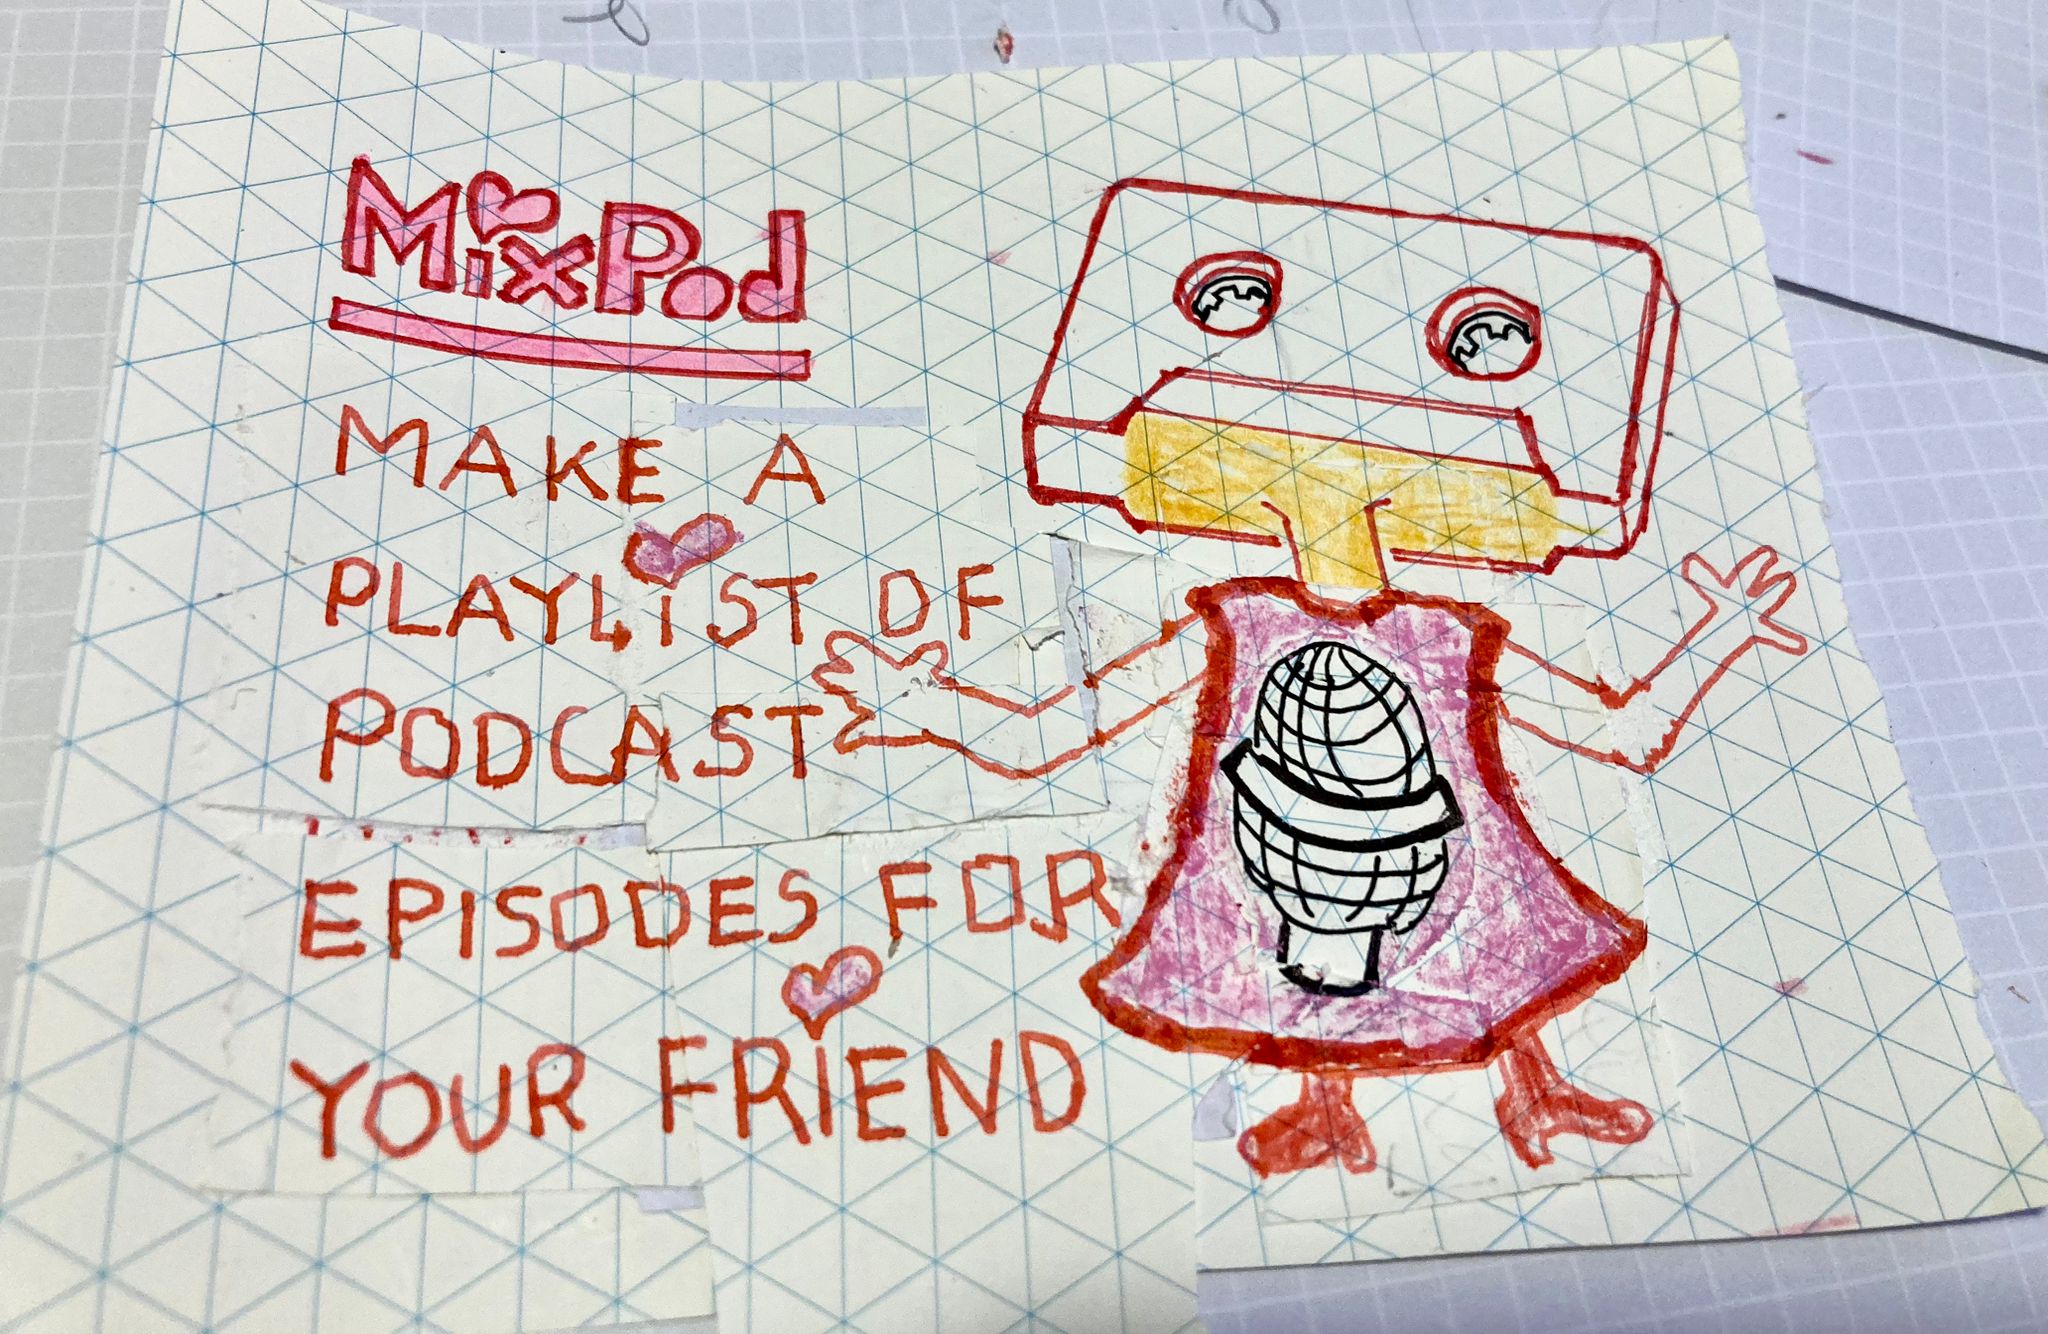 MixPod
MAKE A
PLAYLiST OF
PODCAST
EPISODES FOR
YOUR FRIEND